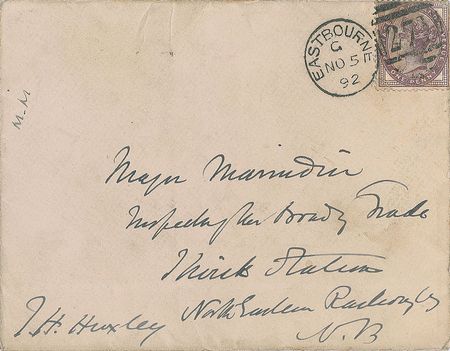 EASTBOURNE
G
NO 5
92
27
M.M
Major Marindin
Inspecting for Board of Trade
Thirsk Station
North Eastern Railway
N.B
T. H. Huxley